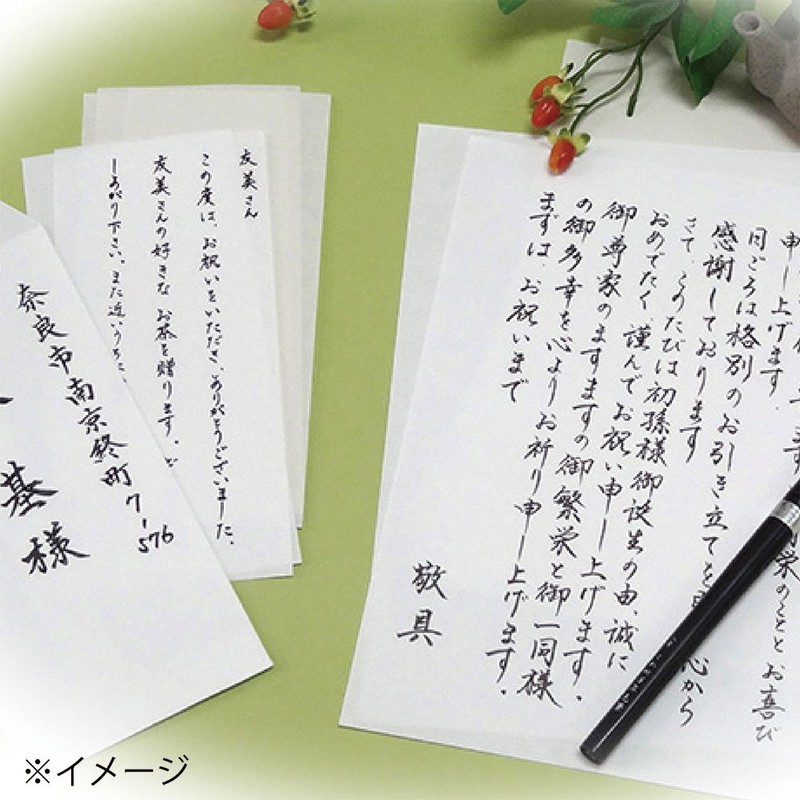 申し上げます。
日ごろは格別のお引き立てを
心から
感謝しております
さて、このたびは初孫様御誕生の由、誠に
おめでたく謹んでお祝い申し上げます。
御尊家のますますの御繁栄と御一同様
の御多幸を心よりお祈り申し上げます。
まずは、お祝いまで
敬具
友美さん
この度は、お祝いをいただき、ありがとうございました。
友美さんの好きなお茶を贈ります。ど
しあがり下さい。また近いうちに、
奈良市南京終町7-576
基様
※イメージ